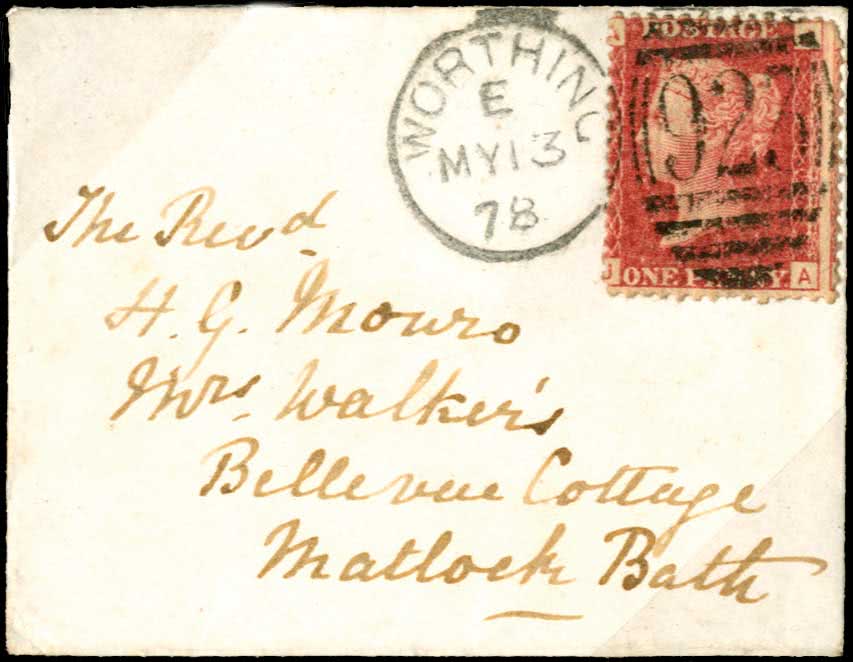 WORTHING
E
MY13
78
POSTAGE
92
ONE PENNY
A
The Revd
H. G. Monro
Mrs Walker's
Bellevue Cottage
Matlock Bath